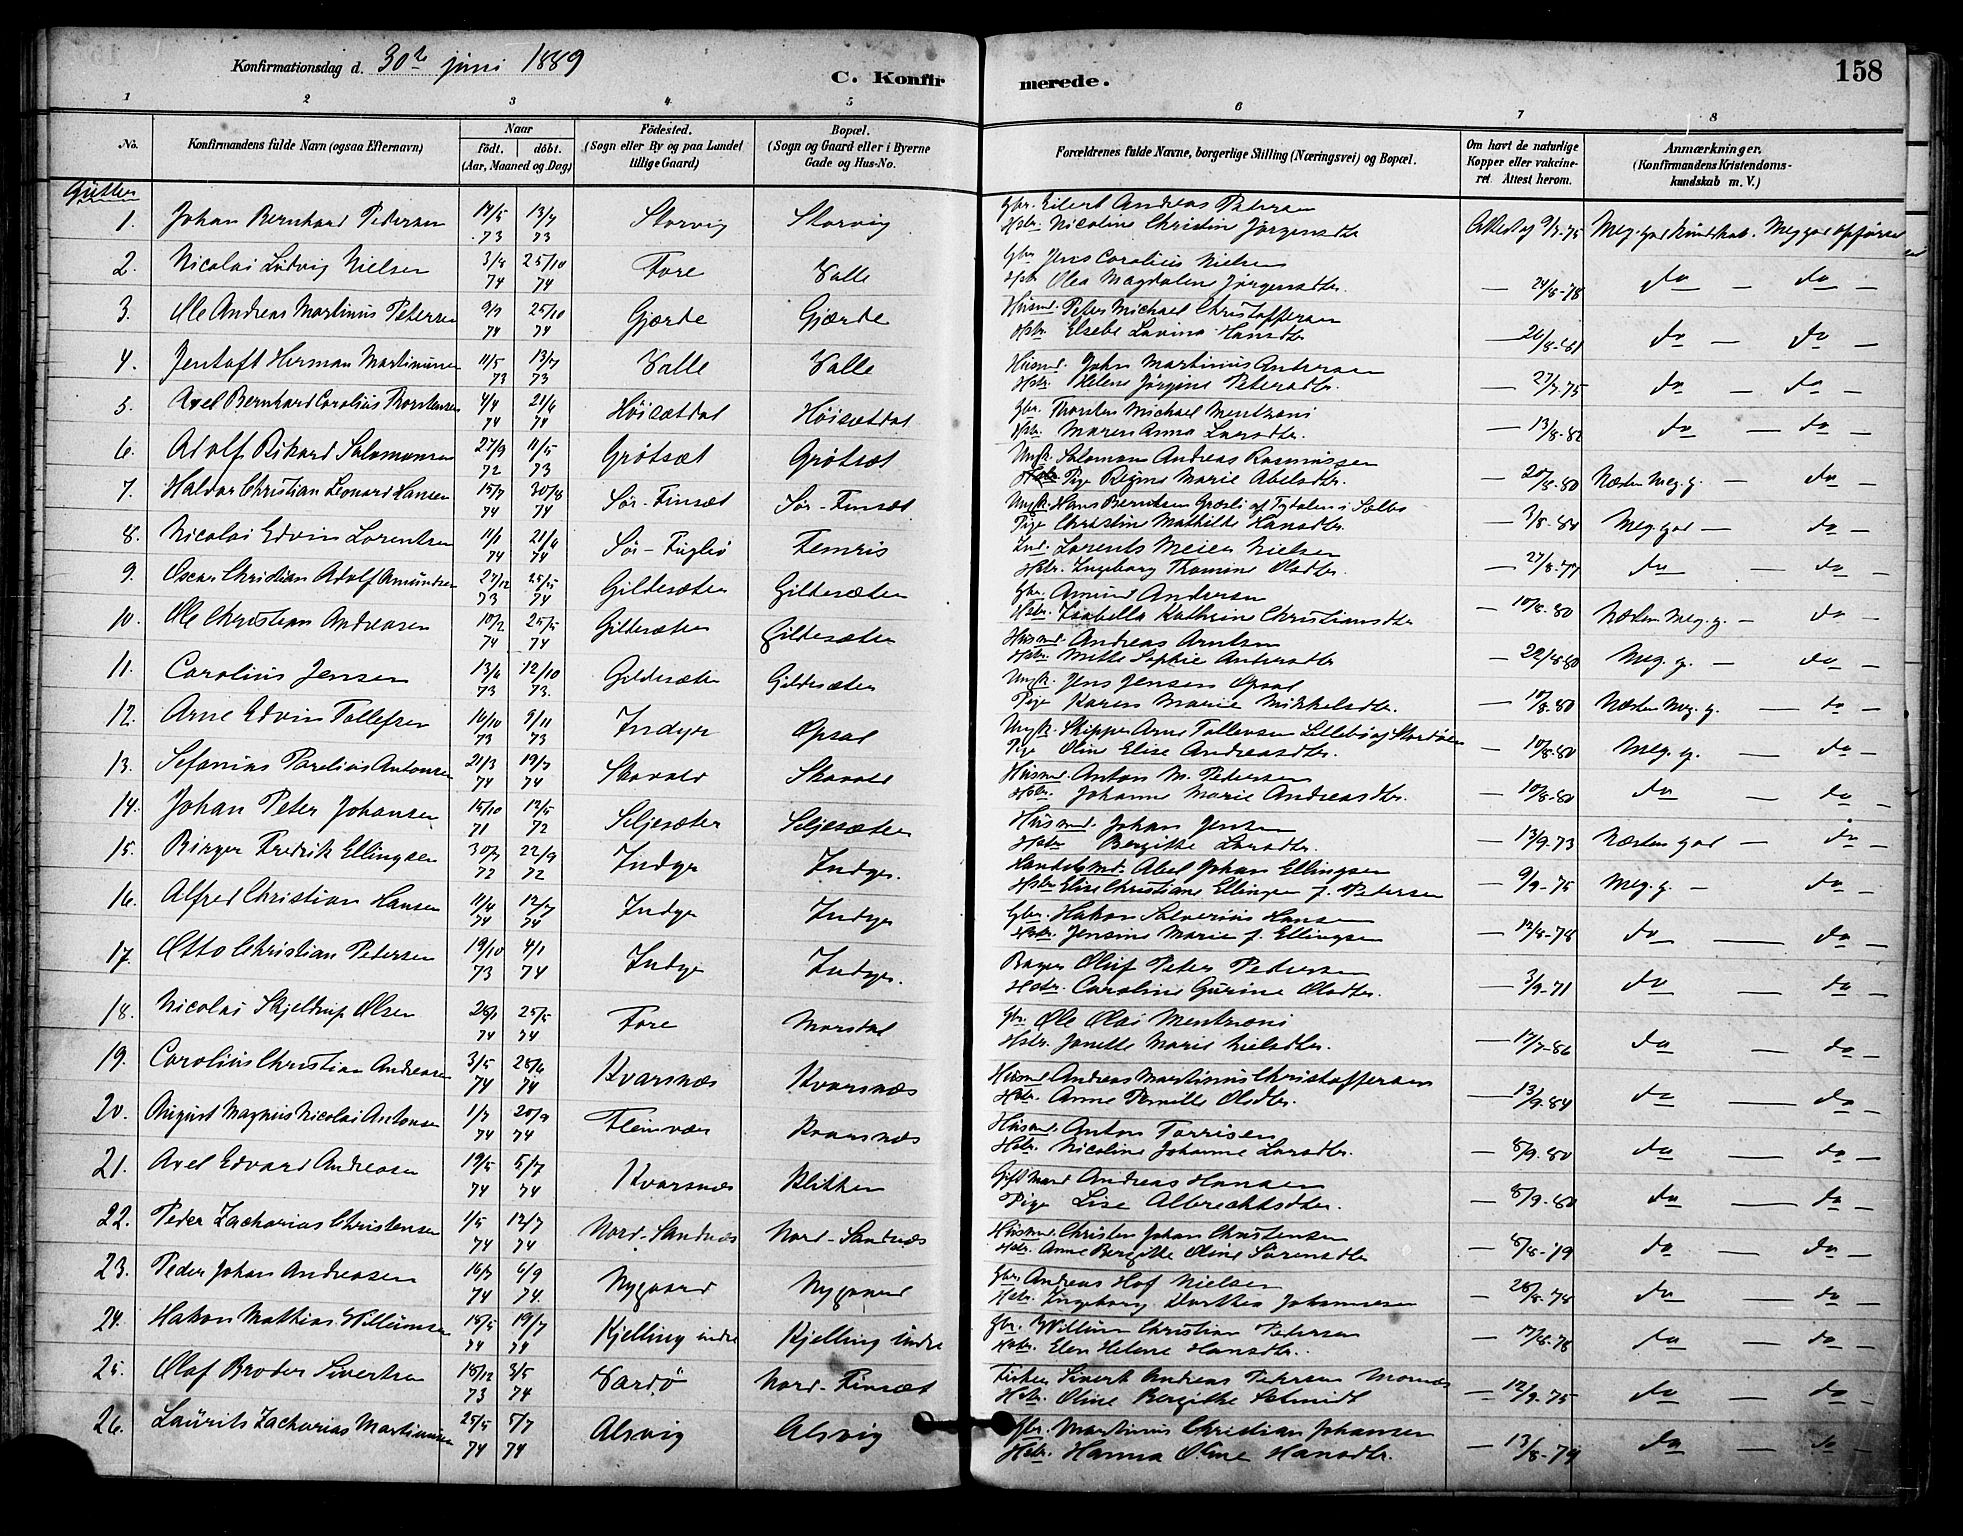 Konfirmationsdag d. 30te juni 1889
C. Konfirmerede.
158
1 2 3 4 5 6 7 8
No. Konfirmandens fulde Navn (ogsaa Efternavn) Naar födt. döbt. (Aar, Maaned og Dag) Födested. (Sogn eller By og paa Landet tillige Gaard) Bopæl. (Sogn og Gaard eller i Byerne Gade og Hus-No. Forældrenes fulde Navne, borgerlige Stilling (Næringsvei) og Bopæl. Om havt de naturlige Kopper eller vakcineret. Attest herom. Anmærkninger, (Konfirmandens Kristendomskundskab m. V.)
Gutter
1. Johan Bernhard Pedersen 14/5 73 13/7 73 Storvig Storvig Gbr. Eilert Andreas Petersen
Hstr. Nicoline Christin Jörgensdtr Attest af 9/9-75 Meg. god kundskab. Meg god opförsel
2. Nicolai Ludvig Nielsen 3/8 74 25/10 74 Fore Valle Gbr Jens Corolius Nielsen
Hstr Olea Magdalene Jörgensdtr. — 24/8-78 do — do —
3. Ole Andreas Martinus Petersen 9/9 74 25/10 74 Gjærde Gjærde Husmd. Peter Michael Christoffersen
Hstr. Elsebe Lavina Hansdtr — 26/8-81 do — do —
4. Jentoft Herman Martinussen 11/5 73 13/7 73 Valle Valle Husmd. John Martinus Andersen
Hstr. Helene Jörgine Petersdtr. — 27/9 75 do — do —
5. Axel Bernhard Carolius Thorstensen 4/4 74 21/6 74 Höisætdal Höisætdal Gbr. Thorsten Michael Mentzoni
Hstr. Maren Anna Larsdtr. — 13/8-82 do — do —
6. Adolf Rikard Salomonsen 27/9 72 11/5 73 Grötsæt Grötsæt Ungk. Salomon Andreas Rasmussen
Pige Regine Marie Abelsdtr. — 20/8-80 Næsten meg. g. — do —
7. Haldor Christian Leonard Hansen 15/7 74 30/8 74 Sör-Finsæt Sör-Finsæt Ungk. Hans Berntsen Græsli af Tydalen i Selbo
Pige Christine Mathilde Hansdtr. — 3/8-84 Meg. god — do —
8. Nicolai Edvin Lorentsen 11/1 74 21/6 74 Sör-Fuglö Femris Ind. Lorents Meier Nielsen
Hstr. Ingeborg Thomine Olsdtr. — 27/8-77 do — do —
9. Oscar Christian Adolf Amundsen 27/12 73 25/5 74 Gildesæter Gildesæter Gbr. Amund Andersen
Hstr. Isabella Kathrine Christiansdtr — 10/8-80 Næsten meg. g. — do —
10. Ole Christian Andreasen 10/2 74 25/5 74 Gildesæter Gildesæter Husmd Andreas Arntsen
Hstr. Mette Sophie Andersdtr — 22/8-80 Meg. g. — do —
11. Carolius Jensen 13/6 73 12/10 73. Gildesæter Gildesæter Ungk. Jens Jensen Opsal
Pige Karen Marie Mikkelsdtr. — 10/8-80 Næsten Meg. g. — do —
12. Arne Edvin Tollefsen 16/10 73 9/11 73 Indyr Opsal Ungk. Skipper Arne Tollevsen Lillebö af Stordöen
Pige Oline Elise Andreasdtr. — 10/8-80 Meg. g. — do —
13. Sefanias Parelius Antonsen 21/3 74 19/7 74 Skavold Skavold Husmd. Anton M. Pedersen
Hstr. Johanne Marie Andreasdtr. — 10/8-80 do — do —
14. Johan Peter Johansen 15/10 71 12/5 72 Seljesæter Seljesæter Husmd. Johan Jensen
Hstr Bergitte Larsdtr. — 13/9-73 Næsten god — do —
15. Birger Fredrik Ellingsen 30/7 72 22/9 72 Indyr Indyr. Handelsmd. Abel Johan Ellingsen
Hstr Elise Christiane Ellingsen f. Petersen — 9/9-75 Meg. g. — do —
16. Alfred Christian Hansen 11/4 74 12/7 74 Indyr Indyr Gbr. Hakon Salverius Hansen
Hstr. Jensine Marie f. Ellingsen — 12/8-78 do — do —
17. Otto Christian Pedersen 19/10 73 4/1 74 Indyr Indyr. Bager Oluf Peter Pedersen
Hstr. Caroline Gurine Olsdtr. — 3/9-71 do — do —
18. Nicolai Skjeldrup Olsen 28/1 74 25/5 74 Fore Morsdal Gbr. Ole Olai Mentzoni
Hstr. Janette Marie Nielsdtr. — 17/7-86 do — do —
19. Carolius Christian Andreasen 3/5 74 28/6 74 Kvarsnæs Kvarsnæs Husmd Andreas Martinus Christoffersen
Hstr. Anne Pernille Olsdtr. — 13/9-84 do — do —
20. August Magnus Nicolai Antonsen 1/7 74 20/9 74 Fleinvær Kvarsnæs Husmd. Anton Torrisen
Hstr. Nicoline Johanne Larsdtr. — 8/9-80 do — do —
21. Axel Edvard Andreasen 19/5 74 5/7 74 Kvarsnæs Klitten Gift Mand Andreas Hansen
Pige Lise Albrechtsdtr. — 8/9-80 do — do —
22. Peder Zacharias Christensen 1/5 74 12/7 74 Nord-Sandnæs Nord-Sandnæs Husmd Christen Johan Christensen
Hstr. Anne Bergitte Oline Sörensdtr — 8/8-79 do — do —
23. Peder Johan Andreasen 16/7 74 6/9 74. Nygaard Nygaard Gbr. Andreas Hof Nielsen
Hstr. Ingeborg Dorthea Johannesen — 28/8-78 do — do —
24. Hakon Mathias Willumsen 18/5 74 19/7 74 Kjelling indre Kjelling indre Gbr. Willum Christian Pedersen
Hstr. Elen Helene Hansdtr. — 17/8-78 do — do —
25. Olaf Broder Sivertsen 18/12 73 3/5 74 Vardö Nord-Finsæt Fisker Sivert Andreas Petersen Mornæs
Hstr. Oline Bergitte Schmidt — 12/9-75 do — do —
26. Laurits Zacharias Martinussen 25/5 74 5/7 74 Alsvig Alsvig Gbr. Martinus Christian Johansen
Hstr. Hanna Oline Hansdtr. — 13/8-79 do — do —